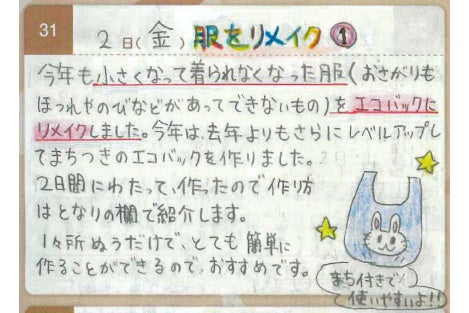 31
2日(金)服をリメイク①
今年も小さくなって着られなくなった服(おさがりも
ほつれやのびなどがあってできないもの)をエコバックに
リメイクしました。今年は、去年よりもさらにレベルアップし
てまちつきのエコバックを作りました。
2日間にわたって、作ったので作り方
はとなりの欄で紹介します。
1ヶ所ぬうだけで、とても簡単に
作ることができるので、おすすめです。
まち付きで
て使いやすいよ!!